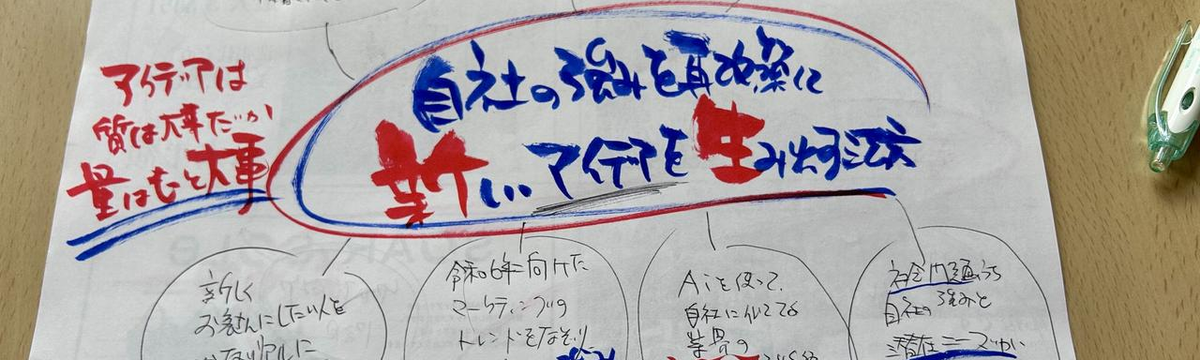 アイデアは
質は大事だが
量はもっと大事
自社の強みを再改築に
新しいアイデアを生み出す方法
新しく
お客さんにしたい人を
リアルに
令和6年向けた
マーケティングの
トレンドをなぞり
Aiを使って、
自社に似てる
業界の
社会問題から
自社の強みと
潜在ニーズが